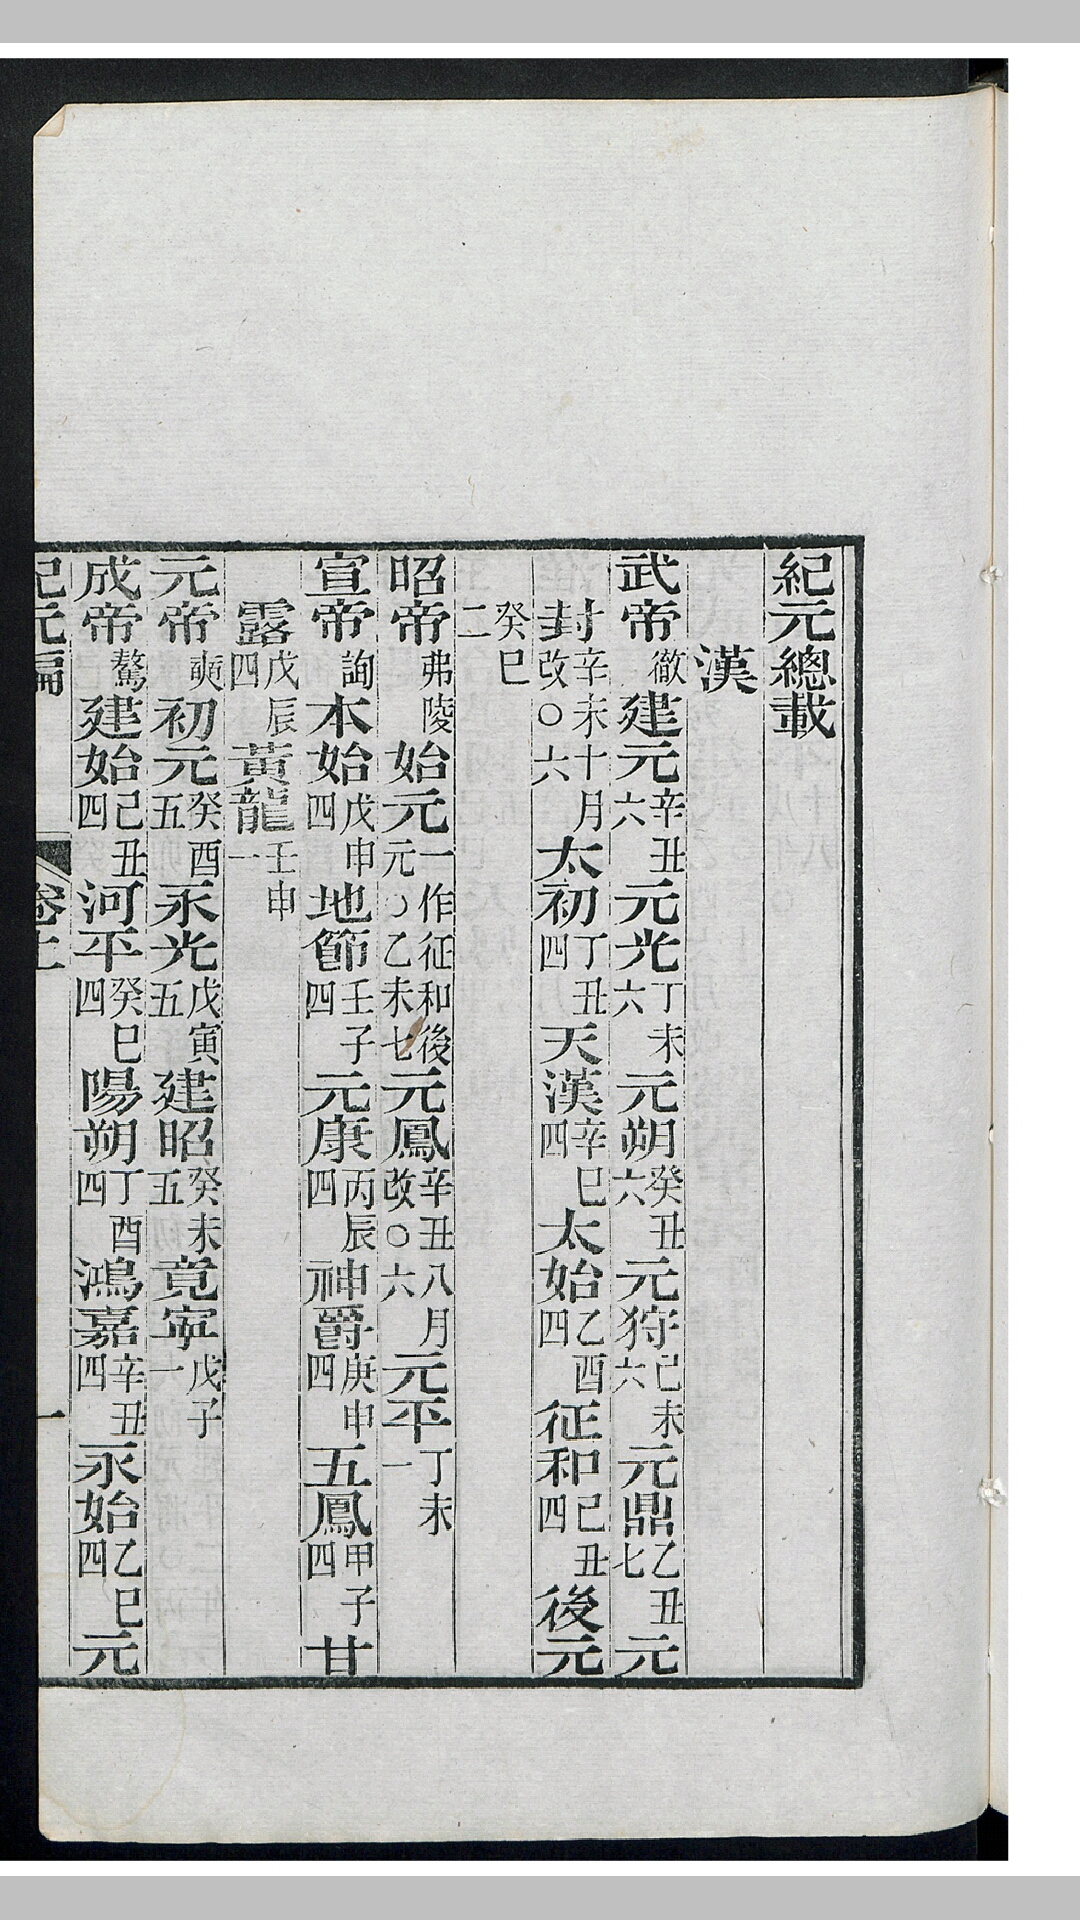 紀元總載
漢
武帝徹建元辛丑六元光丁未六元朔癸丑六元狩己未六元鼎乙丑七元
封辛未十月改○六太初丁丑四天漢辛巳四太始乙酉四征和己丑四後元
癸巳二
昭帝弗陵始元一作征和後元○乙未七元鳳辛丑八月改○六元平丁未一
宣帝詢本始戊申四地節壬子四元康丙辰四神爵庚申四五鳳甲子四甘
露戊辰四黃龍壬申一
元帝奭初元癸酉五永光戊寅五建昭癸未五竟寧戊子一
成帝驁建始己丑四河平癸巳四陽朔丁酉四鴻嘉辛丑四永始乙巳四元
紀元編 卷上 一